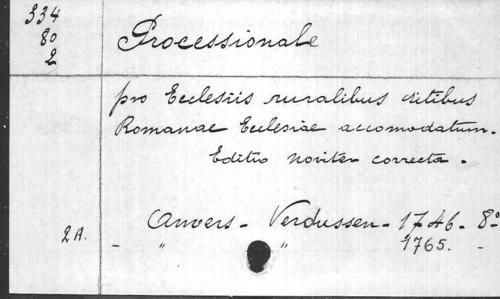 334
80
2
Processionale
pro Ecclesiis ruralibus ritibus
Romanae Ecclesiae accomodatum.
Editio noviter correcta.
Anvers - Verdussen - 1746. 8°
2A. - " " 1765. -